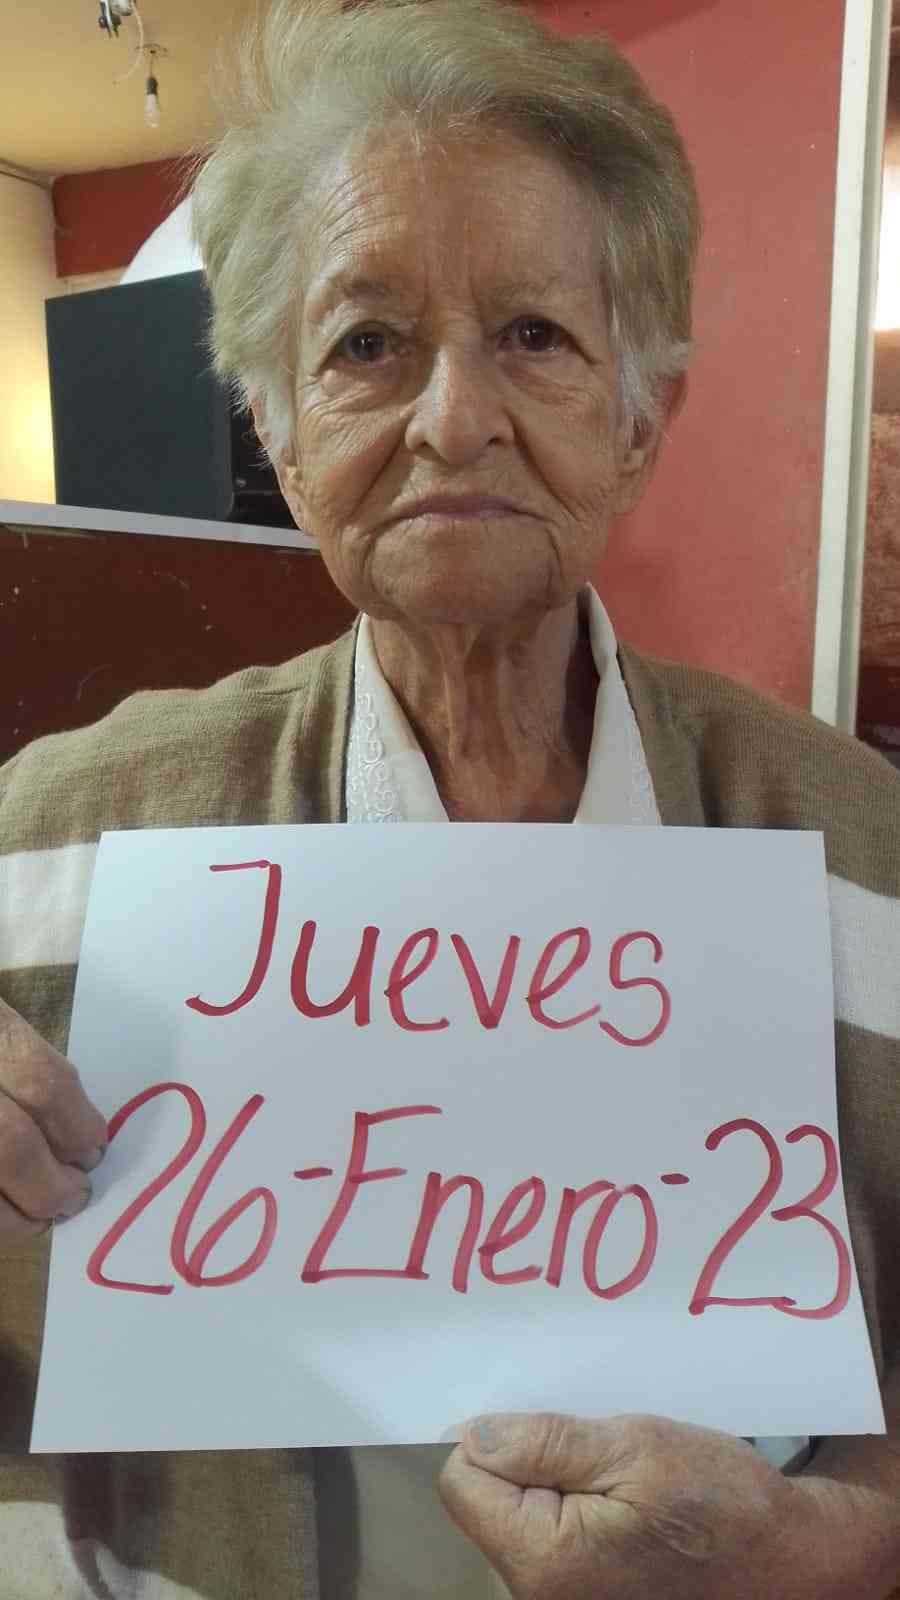 Jueves
26-Enero-23